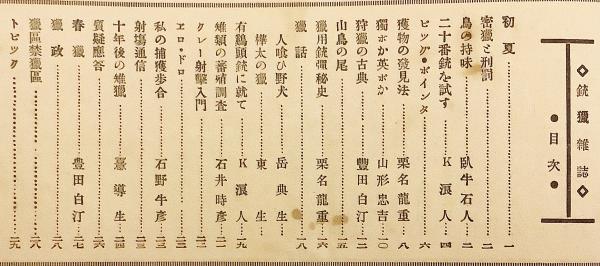 ◇銃獵雜誌◇
●目次●
初夏……一
密獵と刑罰……二
鳥の持味……臥牛石人…二
二十番銃を試す……K濱人…四
ビッグ・ポインタ……六
獲物の發見法……栗名龍重…八
獨ボか英ボか……山形忠吉…一〇
狩獵の古典……豐田白汀…一二
山鳥の尾……一五
獵用銃彈秘史……栗名龍重…一六
獵話……一八
人喰ひ野犬……岳典生
樺太の獵……東生
有鷄頭銃に就て……K濱人…一九
雉類の蕃殖調査……石井時彦…二一
クレー射撃入門……二二
エロ・ドロ……二三
私の捕獲歩合……石野牛彦…二三
射場通信……二四
十年後の雉獵……憙導生…二四
質疑應答……二六
春獵……豊田白汀…二七
獵政……二八
獵區禁獵區……二八
トピック……二九